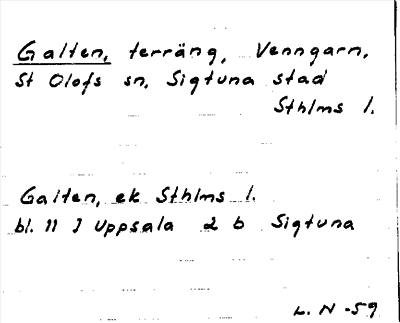 Galten, terräng, Venngarn,
St Olofs sn, Sigtuna stad
Sthlms l.
Galten, ek Sthlms l.
bl. 11 I Uppsala 2 b Sigtuna
L. N -59